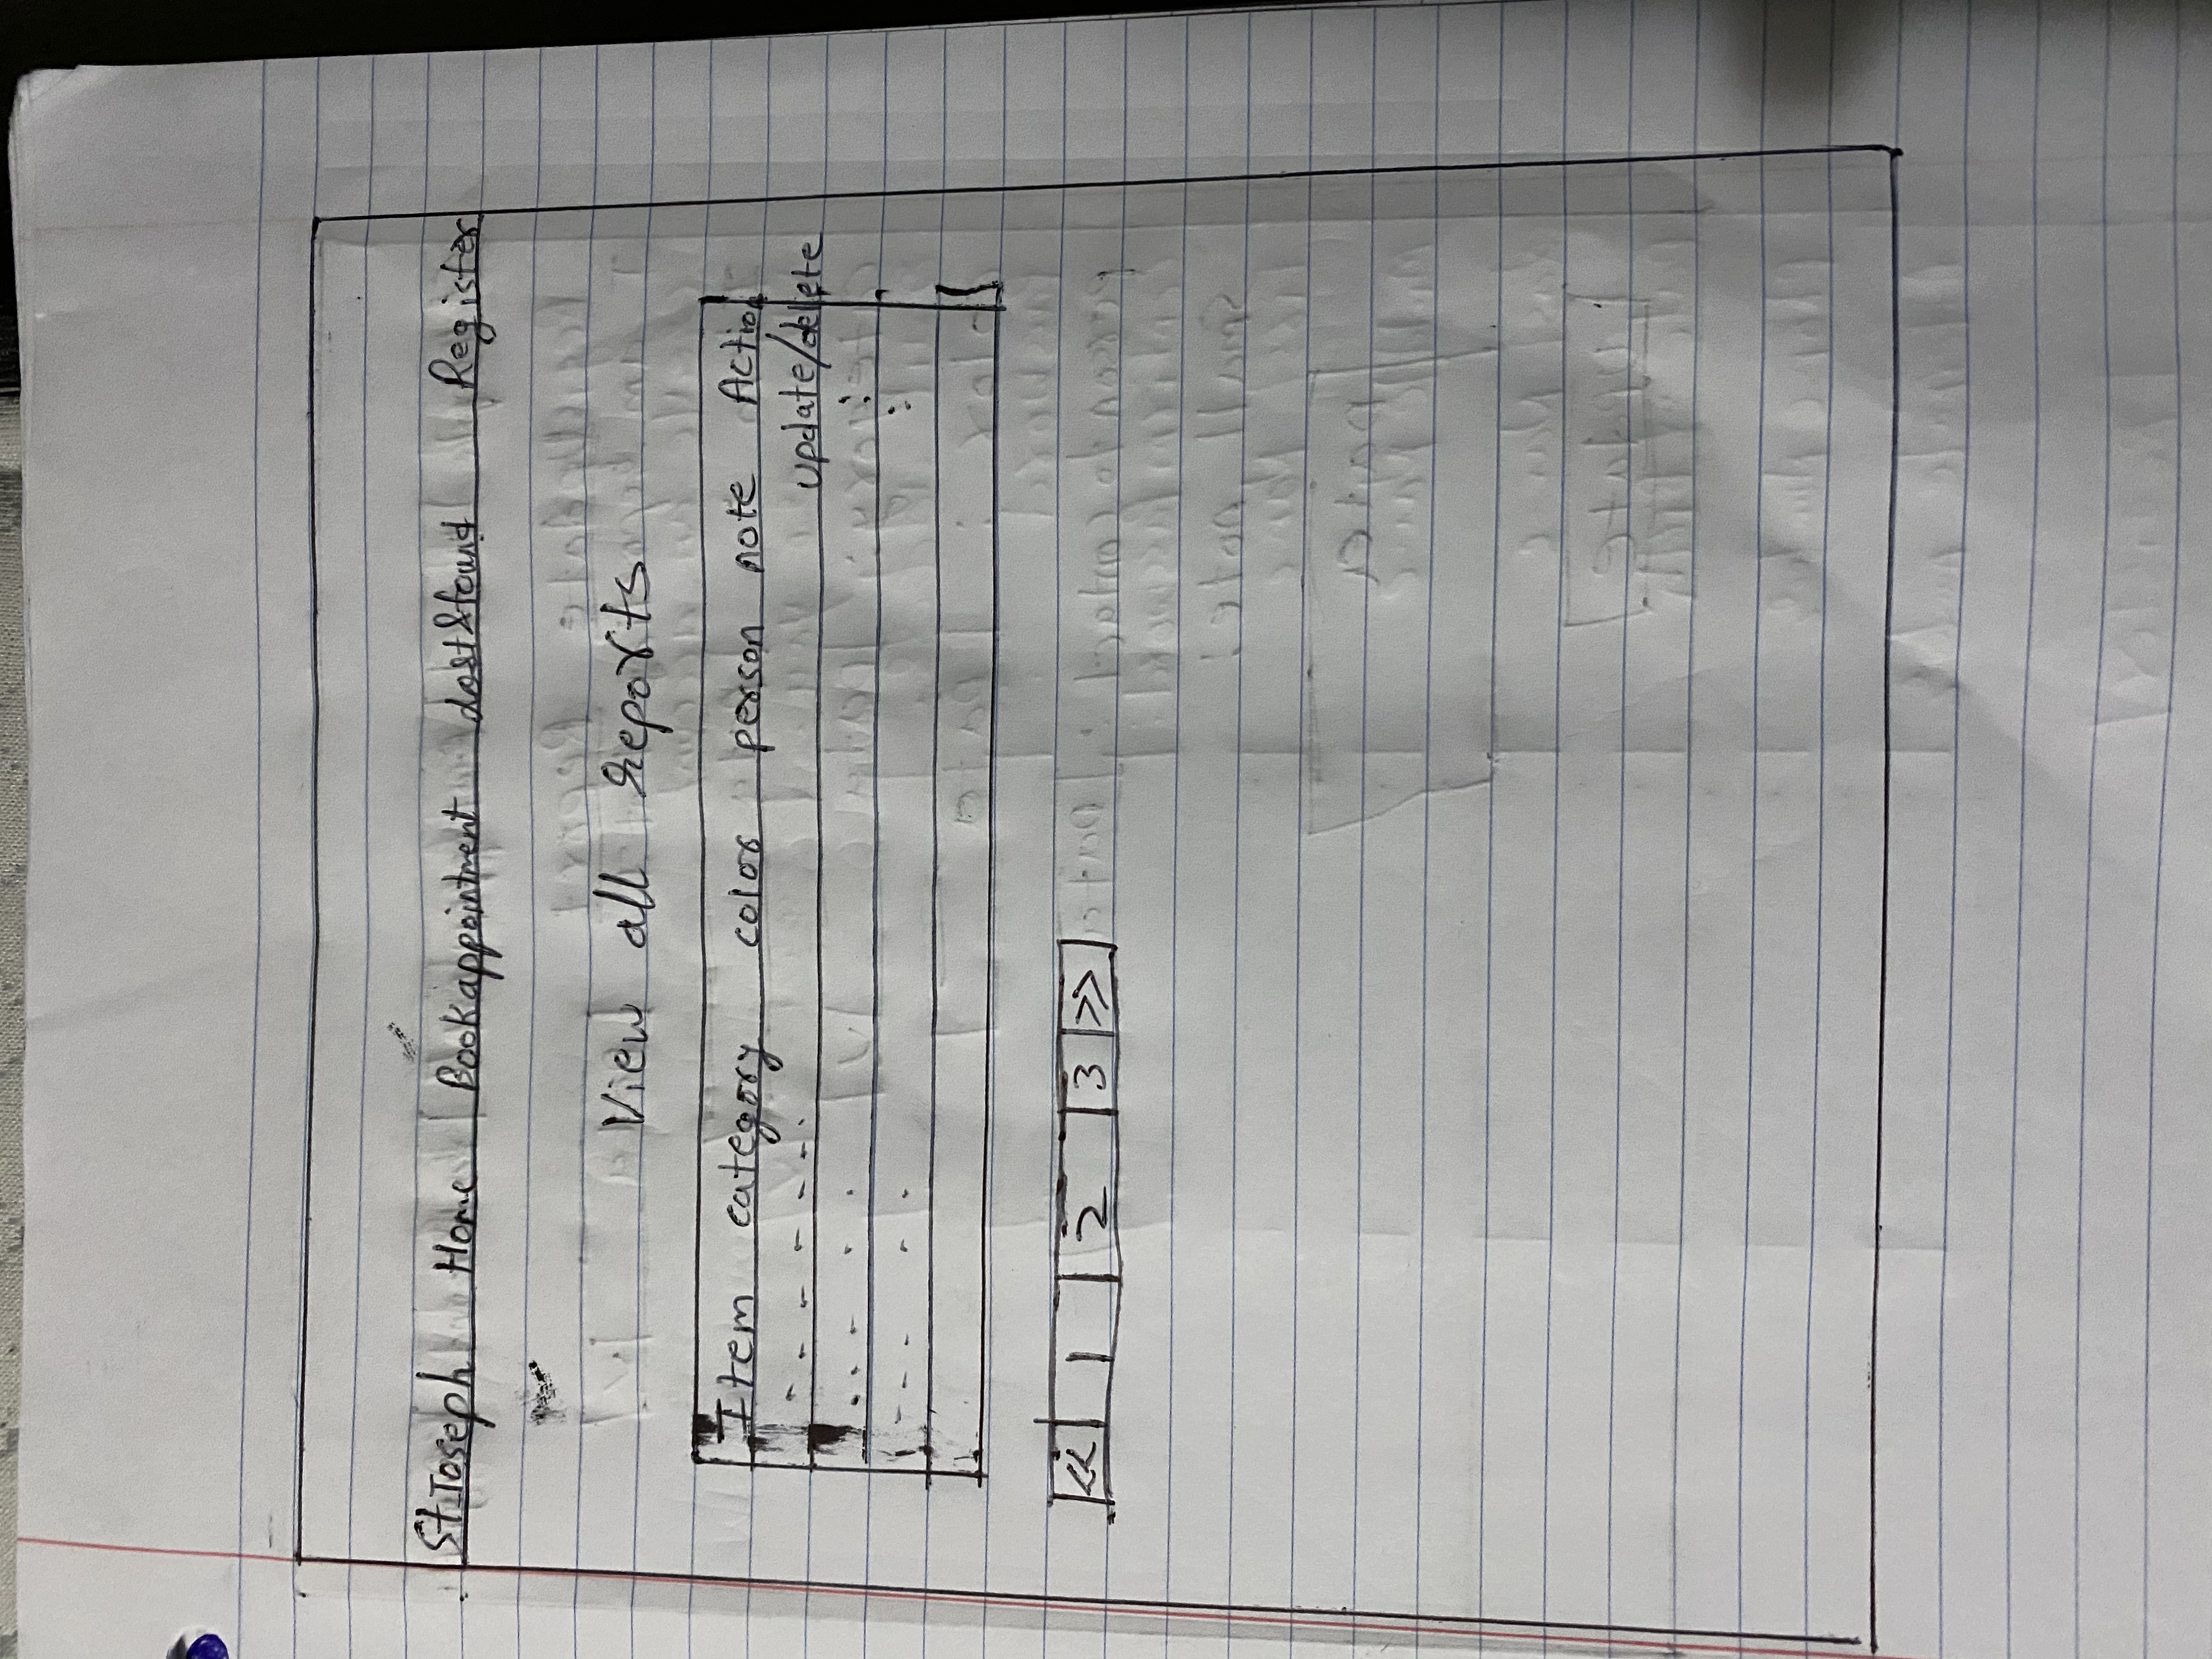 St.Joseph Home Book appointment Lost&found Register
View all reports
Item category color person note Action
update/delete
<< 1 2 3 >>